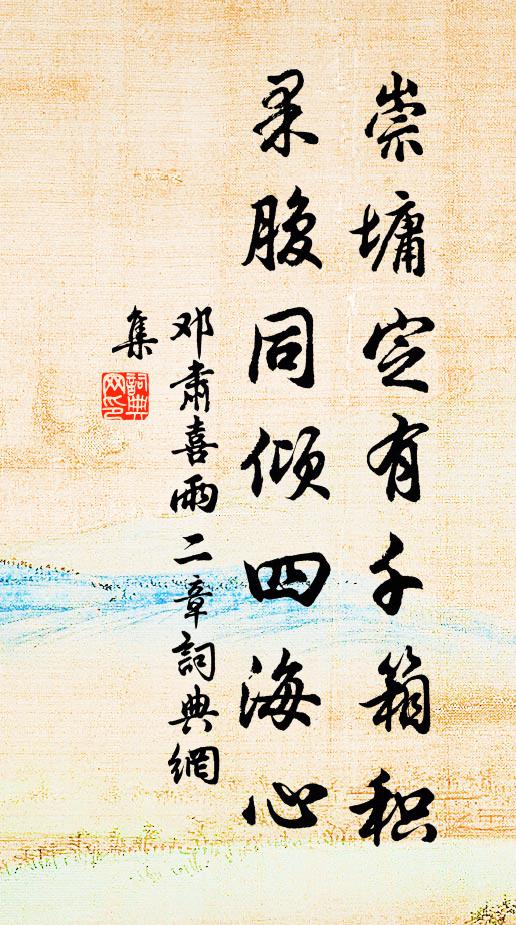 崇墉定有千箱积
果腹同倾四海心
邓肃喜雨二章詞典網
集
詞典網印